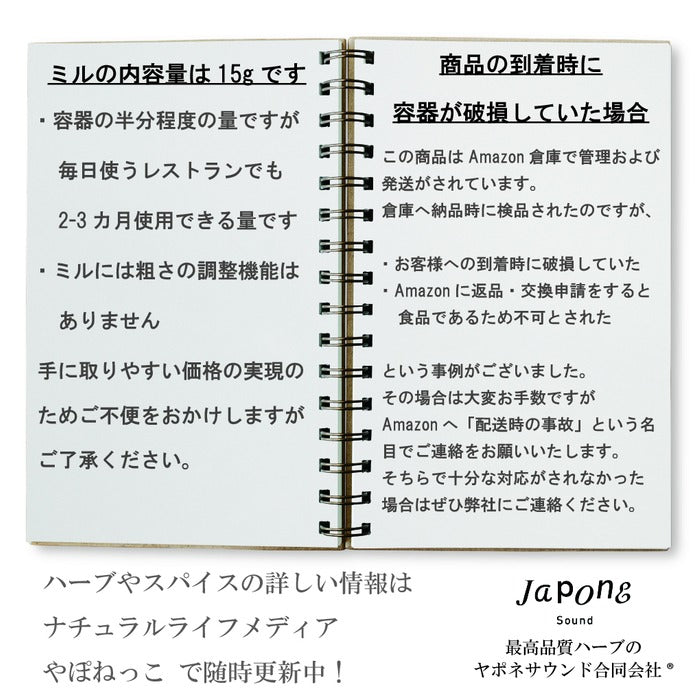 ミルの内容量は15gです
・容器の半分程度の量ですが
毎日使うレストランでも
2-3カ月使用できる量です
・ミルには粗さの調整機能は
ありません
手に取りやすい価格の実現の
ためご不便をおかけしますが
ご了承ください。
商品の到着時に
容器が破損していた場合
この商品はAmazon倉庫で管理および
発送がされています。
倉庫へ納品時に検品されたのですが、
・お客様への到着時に破損していた
・Amazonに返品・交換申請をすると
食品であるため不可とされた
という事例がございました。
その場合は大変お手数ですが
Amazonへ「配送時の事故」という名
目でご連絡をお願いいたします。
そちらで十分な対応がされなかった
場合はぜひ弊社にご連絡ください。
ハーブやスパイスの詳しい情報は
ナチュラルライフメディア
やぽねっこ で随時更新中！
Japone
Sound
最高品質ハーブの
ヤポネサウンド合同会社®